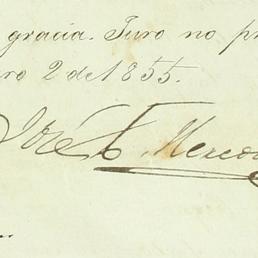 gracia. Juro no pr
ro 2 de 1855.
José F. Merced